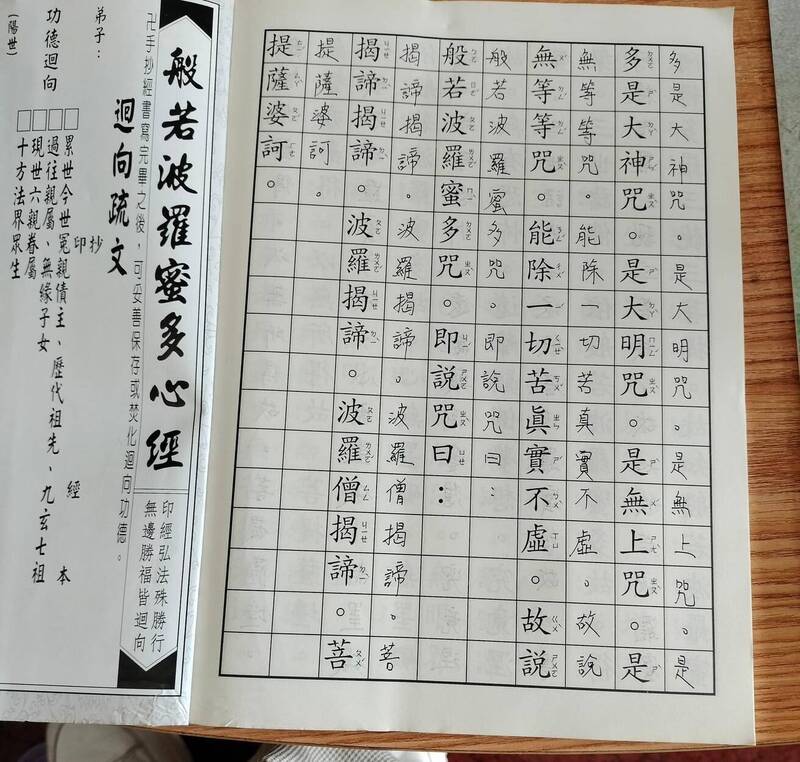 多是大神咒。是大明咒。是無上咒。是
多是大神咒。是大明咒。是無上咒。是
無等等咒。能除一切苦真實不虛。故說
無等等咒。能除一切苦眞實不虛。故說
般若波羅蜜多咒。即說咒曰：
般若波羅蜜多咒。即說咒曰：
揭諦揭諦 波羅揭諦。波羅僧揭諦 菩
揭諦揭諦。波羅揭諦。波羅僧揭諦。菩
提薩婆訶。
提薩婆訶。
般若波羅蜜多心經
印經弘法殊勝行
無邊勝福皆迴向
卍手抄經書寫完畢之後，可妥善保存或焚化迴向功德。
迴向疏文
弟子：
抄
印
經 本
功德迴向
□累世今世冤親債主、歷代祖先、九玄七祖
□過往親屬、無緣子女
□現世六親眷屬
□十方法界眾生
(陽世)